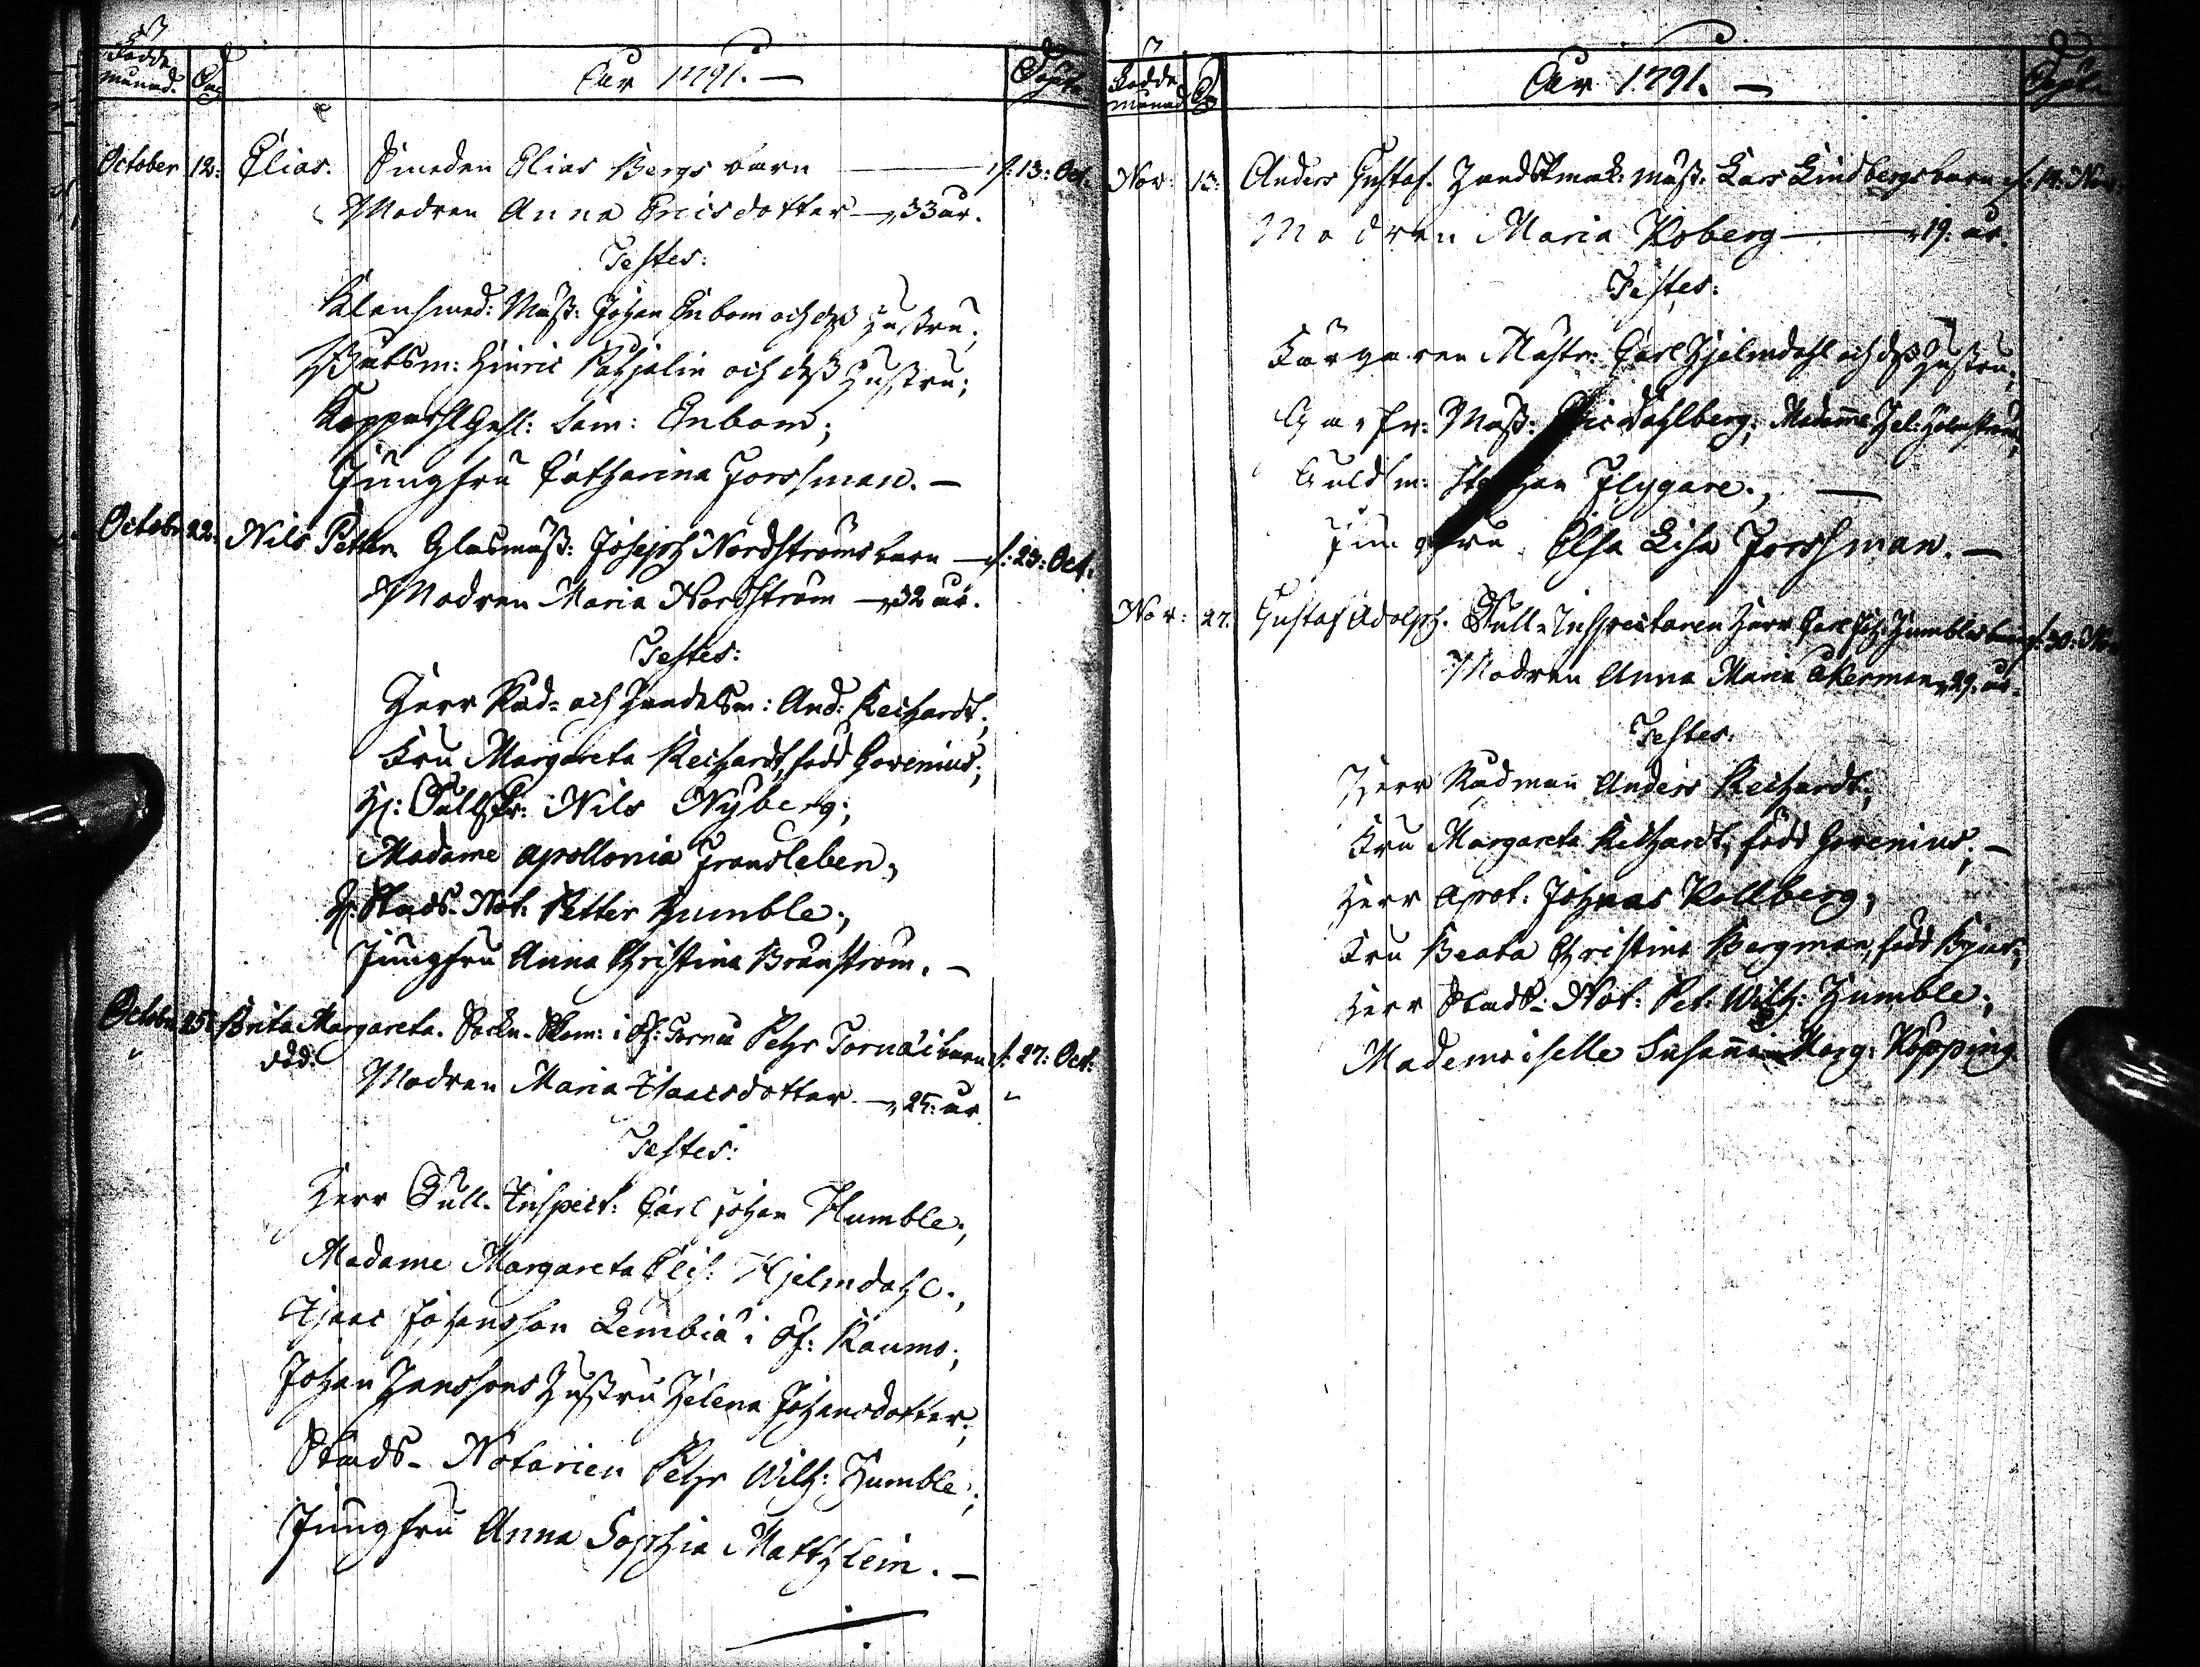 Födde månad. Dag
Åhr 1791. —
Döpt.
October 12: Elias. Smeden Elias Bergs barn — d: 13: Oct.
Modren Anna Ericsdotter — 33 år.
Testes:
Klensmed: Mäst: Johan Enbom och dess hustru;
Båtsm: Hinric Pohjalin och dess hustru;
Kopparsl Gesl: Sam: Enbom;
Jungfru Catharina Forssman. —
Octobr 22: Nils Petter. Glasmäst: Joseph Nordströms barn — d: 23: Oct:
Modren Maria Nordström — 32 år.
Testes:
Herr Råd- och Handelsm: And: Reichardt;
Fru Margareta Reichardt, född Govenius;
H: Tull Nils Nyberg;
Madame Apollonia Fransleben;
H: Stads-Not: Petter Humble;
Jungfru Anna Christina Brånström. —
Octobr 25: Brita Margareta. Sockn-Skom: i Öf: Torneå Pehr Tornai barn d: 27: Oct:
död:
Modren Maria Isaacsdotter — 25: år
Testes:
Herr Tull-Inspect: Carl Johan Humble;
Madame Margareta Elis: Hjelmdahl;
Isaac Johansson Lembiä i Öf: Raumo;
Johan Hanssons Hustru Helena Johansdotter;
Stads-Notarien Pehr Wilh: Humble;
Jungfru Anna Sophia Matthlein. —
Födde månad Dag
Åhr 1791. —
Döpt.
Nov: 13: Anders Gustaf. Handskmak: mäst: Lars Lindbergs barn d: 14: Nov
Modren Maria Koberg — 19. år.
Testes:
Färgaren Mäster: Carl Hjelmdahl och dess Hustru;
Garfv: Mäst: Eric Dahlberg; Madame Hel: Holmström;
Guldsm: Stephan Flygare; —
Jungfru Elsa Lisa Forssman. —
Nov: 27. Gustaf Adolph. Tull-Inspectoren Herr Carl Joh: Humbles barn d: 30: Nov
Modren Anna Maria Åkerman, 29. år.
Testes:
Herr Rådman Anders Reichardt;
Fru Margareta Reichardt, född Govenius; —
Herr Apot: Johnas Kollberg;
Fru Beata Christina Bergman, född Bjur;
Herr Stads-Not: Pet: Wilh: Humble;
Mademoiselle Susanna Marg: Köpping